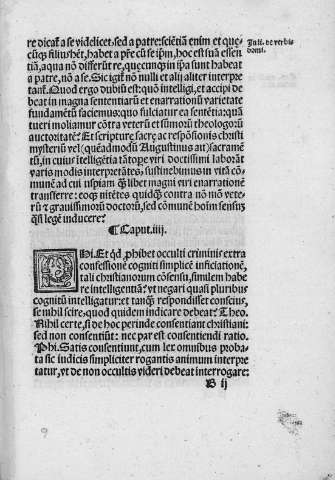 re dicat̃ a se videlicet: sed a patre: sciẽtiã enim et que-
cũq̃ filius hẽt, habet a p̃re cũ se ip̃m, hoc est suã essen
tiã, a qua nõ differũt re, quęcunq̃ in ip̃a sunt habeat
a patre, nõ a se. Sic igit̃ nõ nulli et alij aliter interpre
tant̃. Quod ergo dubiũ est: quõ intelligi, et accipi de
beat in magna sententiarũ et enarrationũ varietate
fundamẽtũ faciemus: quo fulciatur ea sentẽtia: quã
tueri molimur cõtra veterũ et sũmorũ theologorũ
auctoritatẽ? Et scripturę sacrę ac respõsionis christi
mysteriũ vel (quẽadmodũ Augustinus ait) sacramẽ
tũ, in cuius ĩtelligẽtia tãtope viri doctissimi laborãt
varis modis interpretãtes, sustinebimus in vitã cõ-
munẽ ad cui uspiam q̃ libet magni viri enarrationẽ
transferre: eoq̃ nitẽtes quidq̃ contra nõ mõ vete-
rũ & grauissimorũ doctorũ, sed cõmunẽ hoĩm sensum
q̃si legẽ inducere?
¶ Caput. iiij.
Phi. Et q̃d, phibet occulti criminis extra
confessionẽ cogniti simplicẽ inficiationẽ,
tali christianorum cõsensu, similem habe
re intelligentiã? vt negari quasi pluribus
cognitũ intelligatur: et tanq̃ respondisset conscius,
se nihil scire, quod quidem indicare debeat? Theo.
Nihil certe, si de hoc perinde consentiant christiani:
sed non consentiũt: nec par est consentiendi ratio.
Phi. Satis consentiunt, cum lex omnibus proba-
ta sic iudicis simpliciter rogantis animum interpre
tatur, vt de non occultis videri debeat interrogare:
B ij
In li. de verbis
domi.